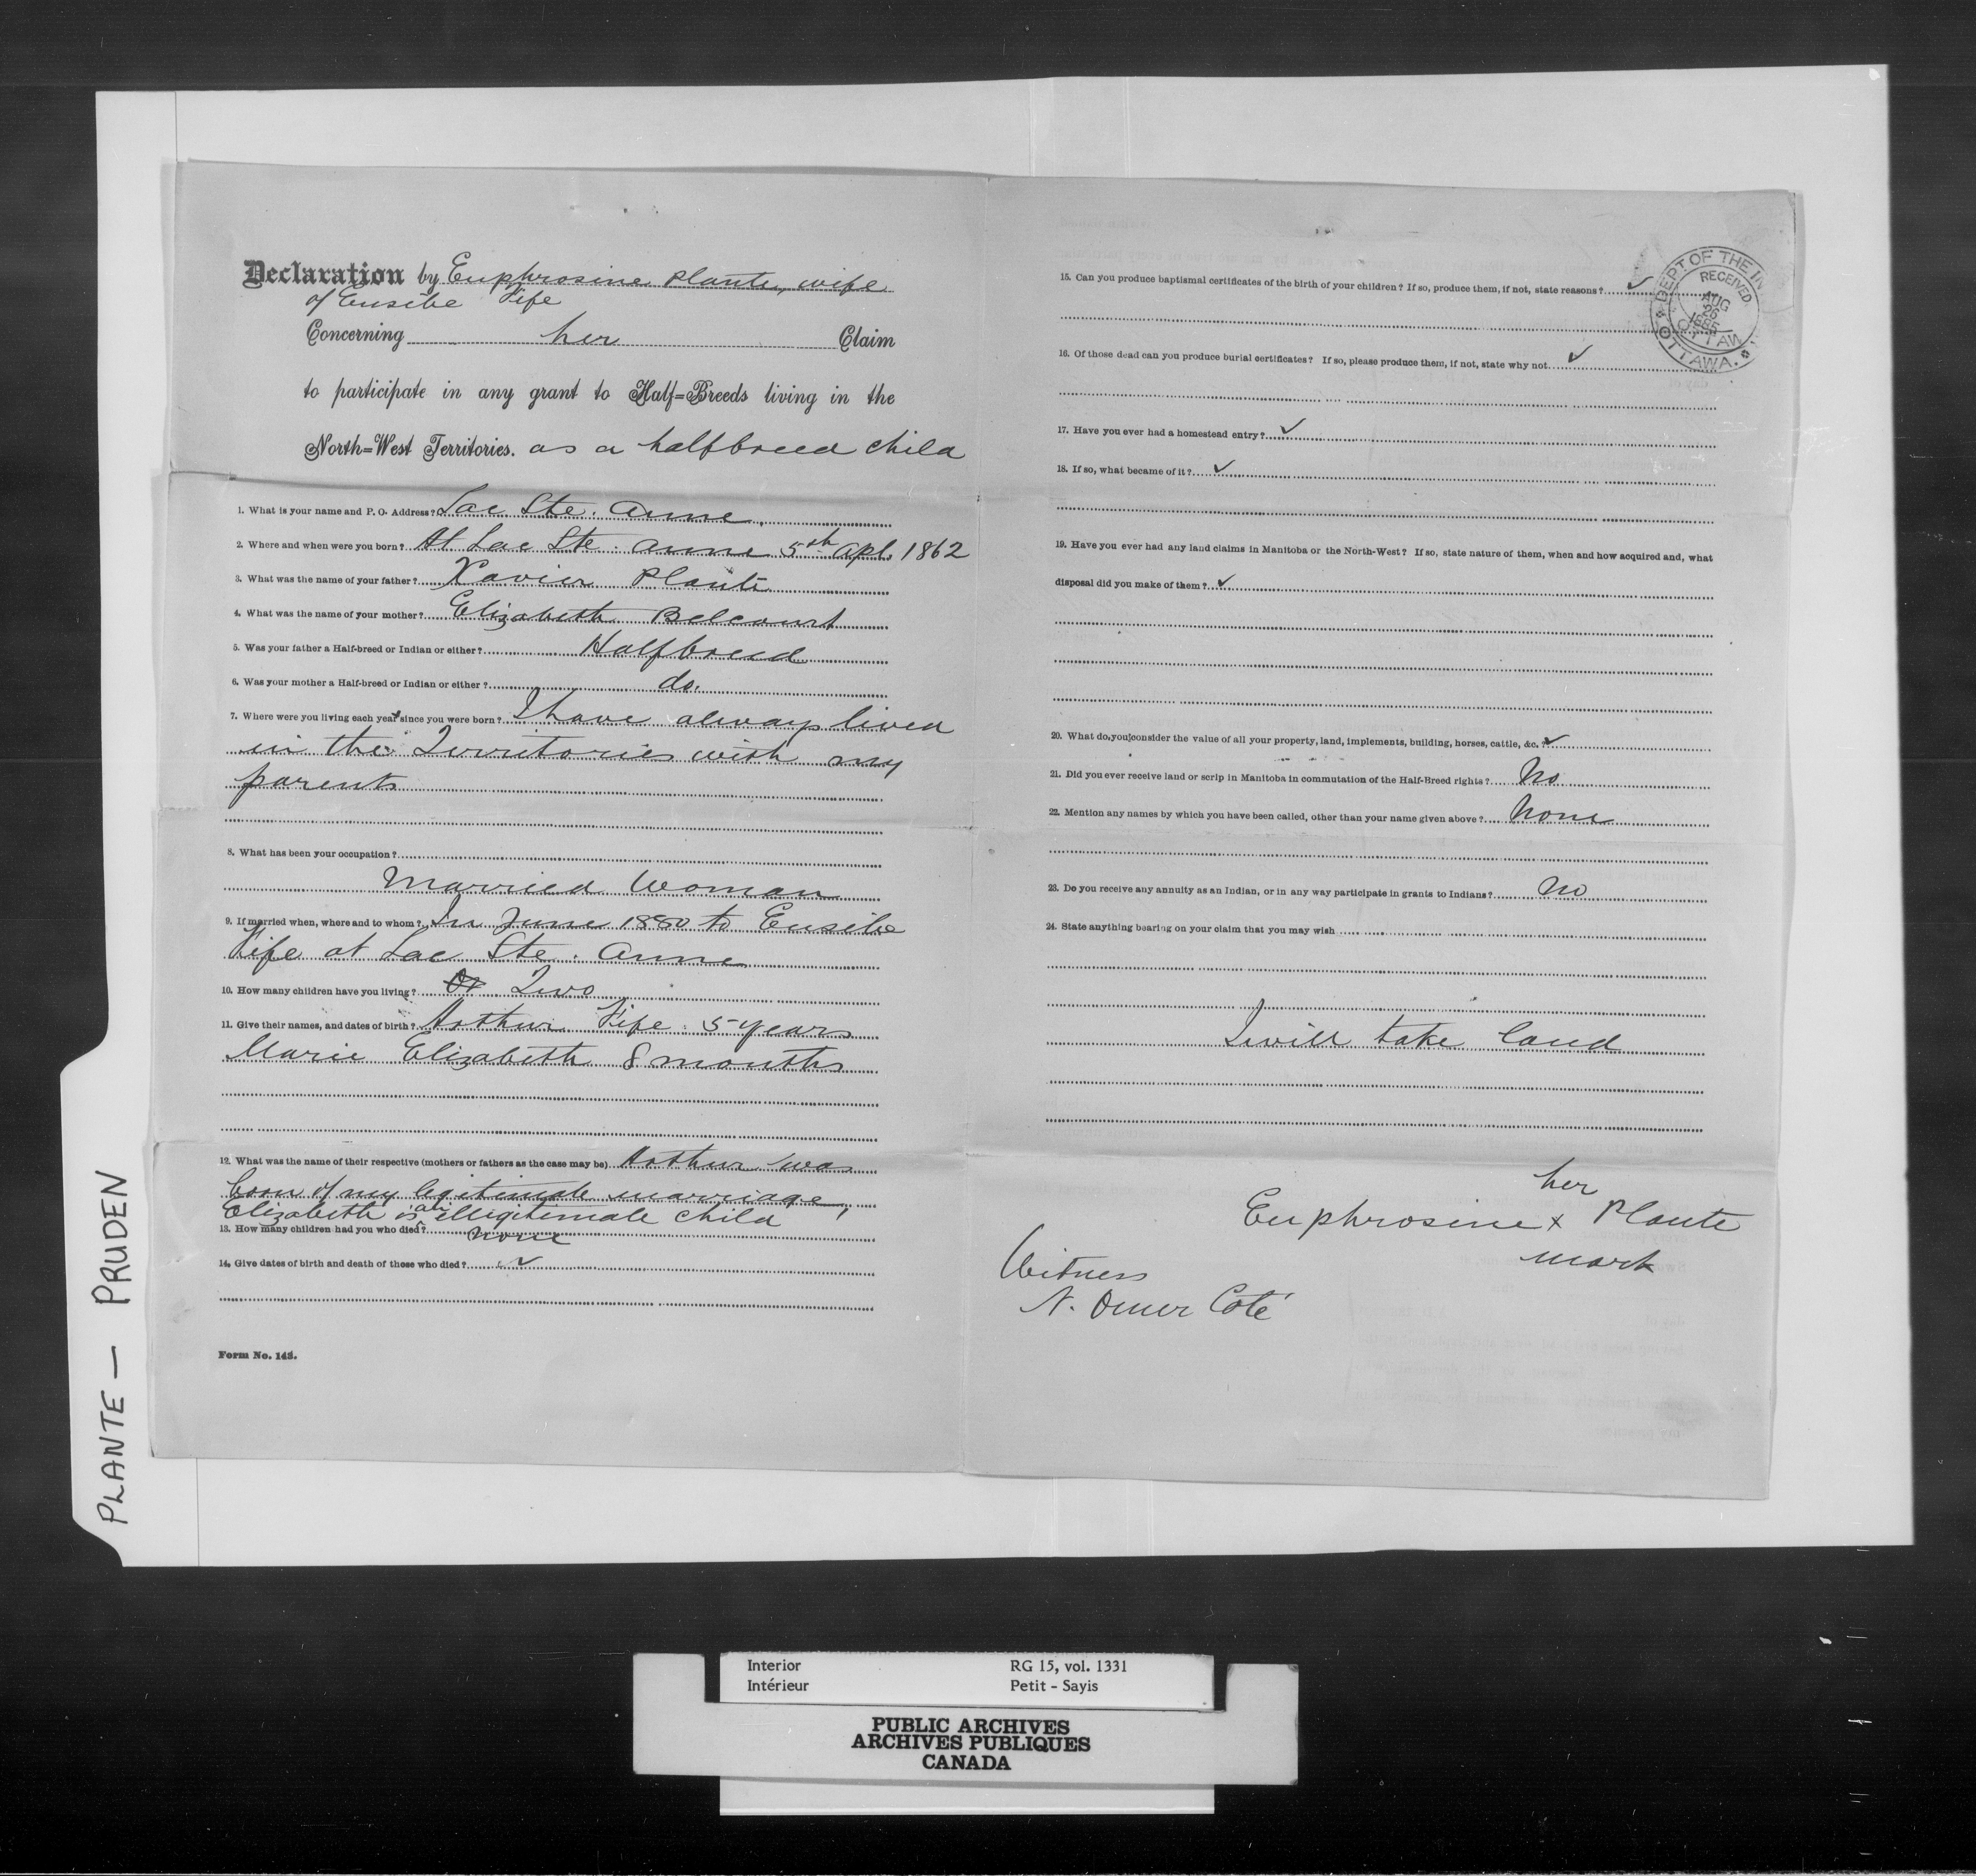 Declaration by Euphrosine Plante, wife
of Eusebe Fife
Concerning her Claim
to participate in any grant to Half=Breeds living in the
North=West Territories. as a halfbreed child
1. What is your name and P. O. Address? Lac Ste. Anne.
2. Where and when were you born? At Lac Ste. Anne 5th Apl. 1862
3. What was the name of your father? Xavier Plante
4. What was the name of your mother? Elizabeth Belcourt
5. Was your father a Half-breed or Indian or either? Halfbreed
6. Was your mother a Half-breed or Indian or either? do.
7. Where were you living each year since you were born? I have always lived
in the Territories with my
parents
8. What has been your occupation?
Married Woman
9. If married when, where and to whom? In June 1880 to Eusebe
Fife at Lac Ste. Anne
10. How many children have you living? Two
11. Give their names, and dates of birth? Arthur Fife 5 years
Marie Elizabeth 8 months
12. What was the name of their respective (mothers or fathers as the case may be) Arthur was
born of my legitimate marriage,
Elizabeth is an illegitimate child
13. How many children had you who died? none
14. Give dates of birth and death of those who died? ✓
Form No. 143.
15. Can you produce baptismal certificates of the birth of your children? If so, produce them, if not, state reasons? ✓
16. Of those dead can you produce burial certificates? If so, please produce them, if not, state why not ✓
17. Have you ever had a homestead entry? ✓
18. If so, what became of it? ✓
19. Have you ever had any land claims in Manitoba or the North-West? If so, state nature of them, when and how acquired and, what
disposal did you make of them? ✓
20. What do you consider the value of all your property, land, implements, building, horses, cattle, &c.? ✓
21. Did you ever receive land or scrip in Manitoba in commutation of the Half-Breed rights? No
22. Mention any names by which you have been called, other than your name given above? None
23. Do you receive any annuity as an Indian, or in any way participate in grants to Indians? No
24. State anything bearing on your claim that you may wish
I will take land
her
Euphrosine x Plante
mark
Witness
N. Omer Coté
DEPT. OF THE IN
RECEIVED
AUG
OTTAWA.
PLANTE — PRUDEN
Interior RG 15, vol. 1331
Intérieur Petit - Sayis
PUBLIC ARCHIVES
ARCHIVES PUBLIQUES
CANADA